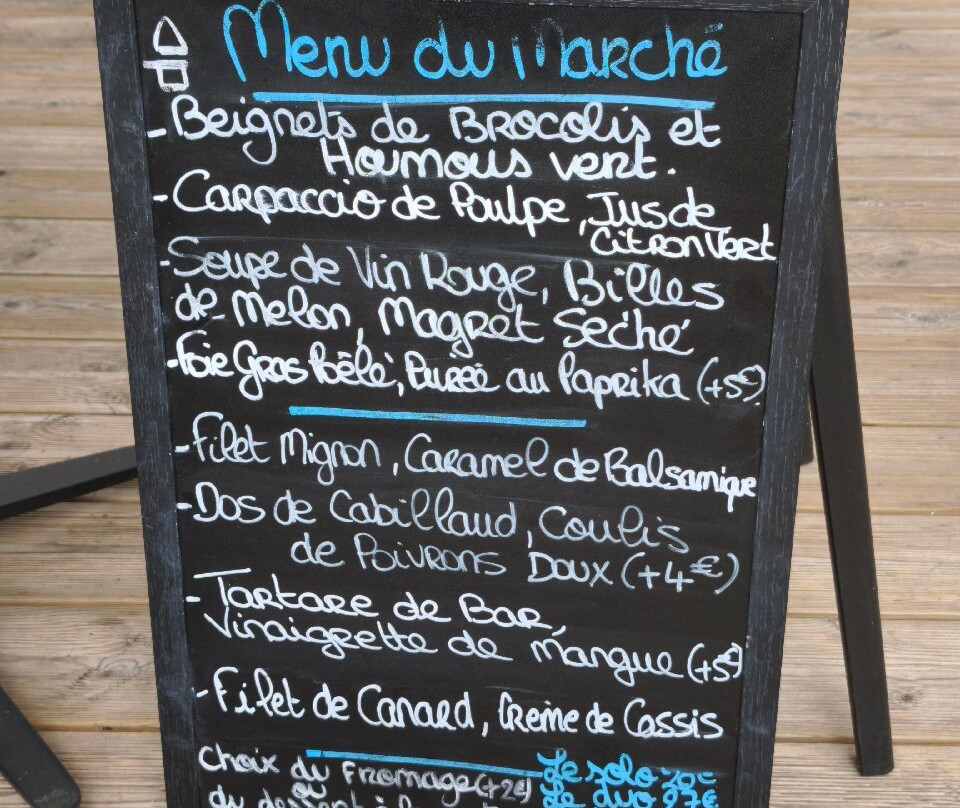 Menu du Marché
- Beignets de Brocolis et
Houmous vert.
- Carpaccio de Poulpe, Jus de
Citron Vert
- Soupe de Vin Rouge, Billes
de Melon, Magret Séché
- Foie Gras Pôêlé, Purée au Paprika (+5€)
- Filet Mignon, Caramel de Balsamique
- Dos de Cabillaud, Coulis
de Poivrons Doux (+4€)
- Tartare de Bar,
Vinaigrette de Mangue (+5€)
- Filet de Canard, Crème de Cassis
Choix du Fromage (+2€) Le solo
ou Le duo
du dessert à la